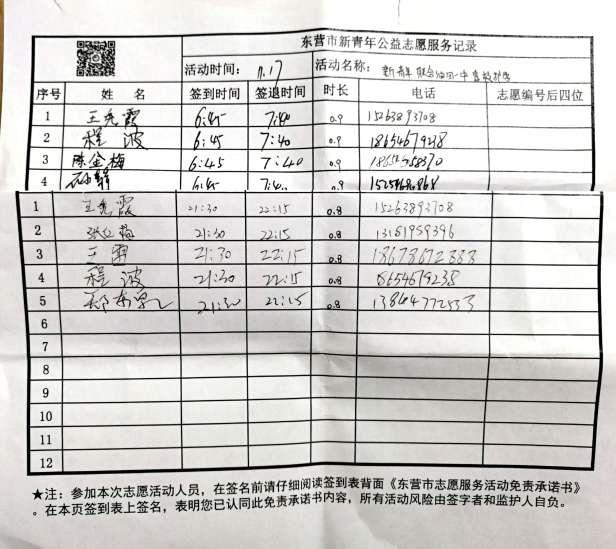 东营市新青年公益志愿服务记录
活动时间: 11.17 活动名称: 新青年
序号 姓 名 签到时间 签退时间 时长 电话 志愿编号后四位
1 王秀霞 6:45 7:40 0.9 15263893708
2 程波 6:45 7:40 0.9
3 陈金梅 6:45 7:40 0.9
4 6:45 7:40 0.9
1 王秀霞 21:30 22:15 0.8 15263893708
2 21:30 22:15 0.8 13181959396
3 王雷 21:30 22:15 0.8
4 程波 21:30 22:15 0.8 18654679238
5 21:30 22:15 0.8
6
7
8
9
10
11
12
★注: 参加本次志愿活动人员, 在签名前请仔细阅读签到表背面《东营市志愿服务活动免责承诺书》
。在本页签到表上签名, 表明您已认同此免责承诺书内容, 所有活动风险由签字者和监护人自负。